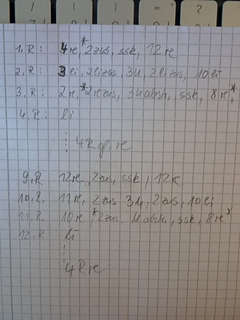 1. R: 4 re, * 2 zus, ssk, 12 re
2. R: 3 li, 2 li zus, 3 U, 2 li zus, 10 li
3. R: 2 re, * 2 re zus, 3 U abh, ssk, 8 re, *
4. R: li
4 R gl. re
9. R 12 re, 2 zus, ssk, 12 re
10. R. 11 re, 2 zus 3 U, 2 zus, 10 li
11. R. 10 re * 2 zus 4 abh, ssk, 8 re *
12. R li
4 R re